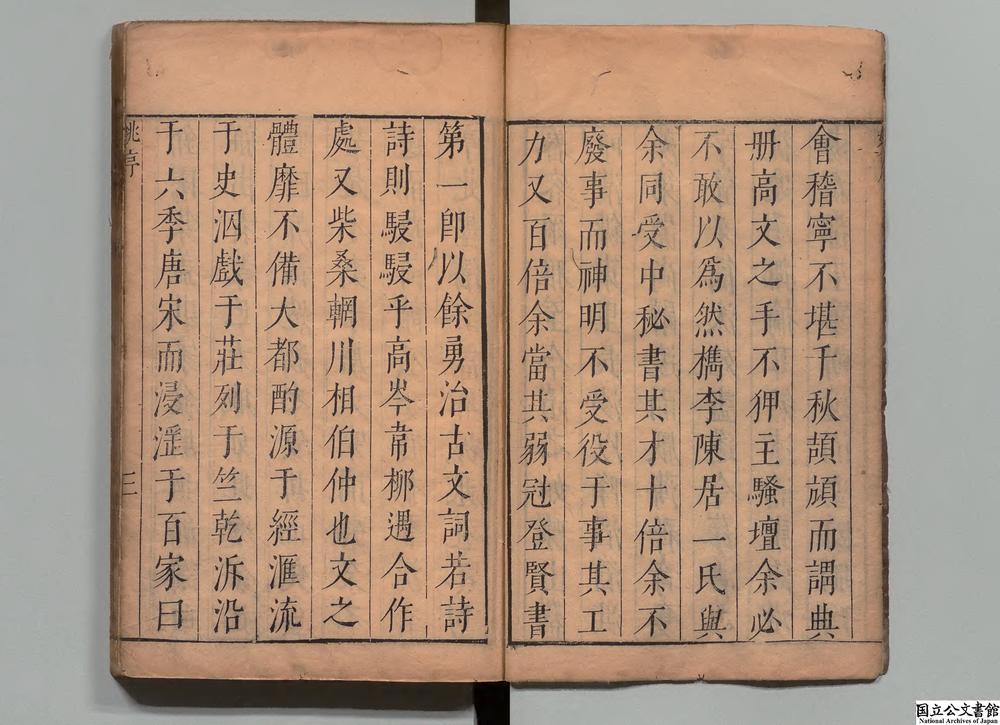 會稽寧不堪千秋頡頏而謂典
册高文之手不狎主騷壇余必
不敢以爲然檇李陳居一氏與
余同受中秘書其才十倍余不
廢事而神明不受役于事其工
力又百倍余當其弱冠登賢書
第一卽以餘勇治古文詞若詩
詩則駸駸乎高岑韋栁遇合作
處又柴桑輞川相伯仲也文之
體靡不備大都酌源于經滙流
于史泅戲于莊列于竺乾泝沿
于六季唐宋而浸滛于百家曰
亭
三
国立公文書館
National Archives of Japan